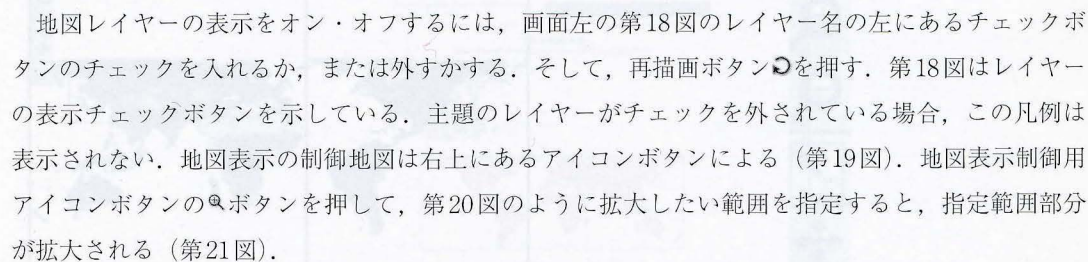 地図レイヤーの表示をオン・オフするには，画面左の第18図のレイヤー名の左にあるチェックボ
タンのチェックを入れるか，または外すかする．そして，再描画ボタンを押す．第18図はレイヤー
の表示チェックボタンを示している．主題のレイヤーがチェックを外されている場合，この凡例は
表示されない．地図表示の制御地図は右上にあるアイコンボタンによる（第19図）．地図表示制御用
アイコンボタンのボタンを押して，第20図のように拡大したい範囲を指定すると，指定範囲部分
が拡大される（第21図）．